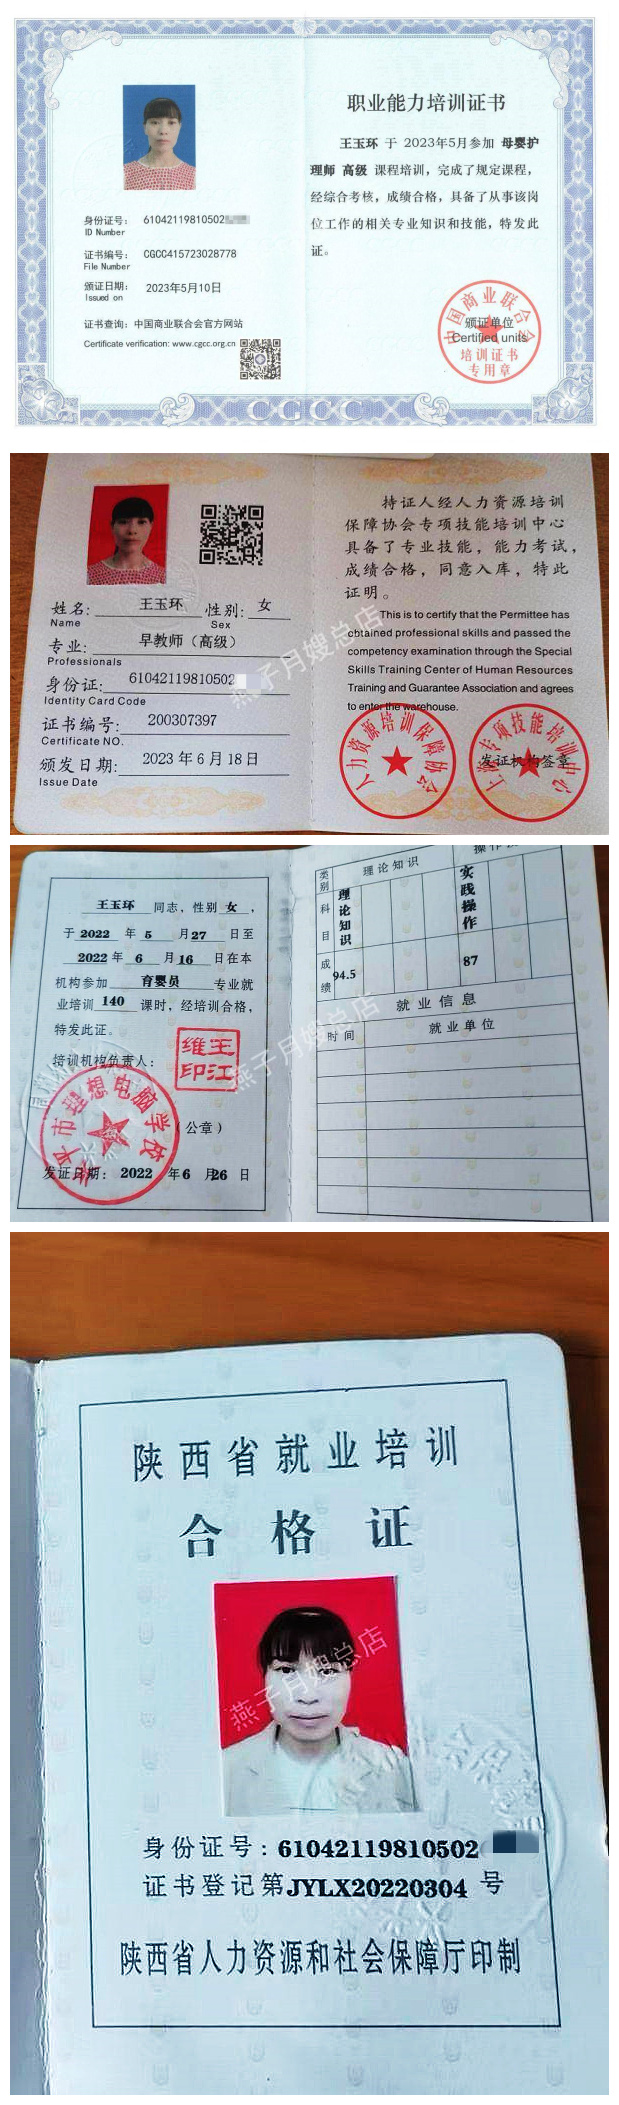 职业能力培训证书
王玉环 于 2023年5月参加 母婴护
理师 高级 课程培训，完成了规定课程，
经综合考核，成绩合格，具备了从事该岗
位工作的相关专业知识和技能，特发此
证。
身份证号： 61042119810502
ID Number
证书编号： CGCC415723028778
File Number
颁证日期： 2023年5月10日
Issued on
证书查询：中国商业联合会官方网站
Certificate verification: www.cgcc.org.cn
中国商业联合会
颁证单位
Certified units
培训证书
专用章
CGCC
姓名: 王玉环 性别: 女
Name Sex
专业: 早教师（高级）
Professionals
身份证: 61042119810502
Identity Card Code
证书编号: 200307397
Certificate NO.
颁发日期: 2023 年 6 月 18 日
Issue Date
持证人经人力资源培训
保障协会专项技能培训中心
具备了专业技能，能力考试，
成绩合格，同意入库，特此
证明。
This is to certify that the Permittee has
obtained professional skills and passed the
competency examination through the Special
Skills Training Center of Human Resources
Training and Guarantee Association and agrees
to enter the warehouse.
人力资源培训保障协会
上海专项技能培训中心
发证机构签章
燕子月嫂总店
王玉环 同志，性别 女 ，
于 2022 年 5 月 27 日至
2022 年 6 月 16 日在本
机构参加 育婴员 专业就
业培训 140 课时，经培训合格，
特发此证。
培训机构负责人：
维王
印江
平市理想电脑学校
（公章）
发证日期： 2022 年 6 月 26 日
类别 理论知识
科目 理论知识 实践操作
成绩 94.5 87
就业信息
时间 就业单位
燕子月嫂总店
陕西省就业培训
合格证
燕子月嫂总店
身份证号：61042119810502
证书登记第JYLX20220304 号
陕西省人力资源和社会保障厅印制